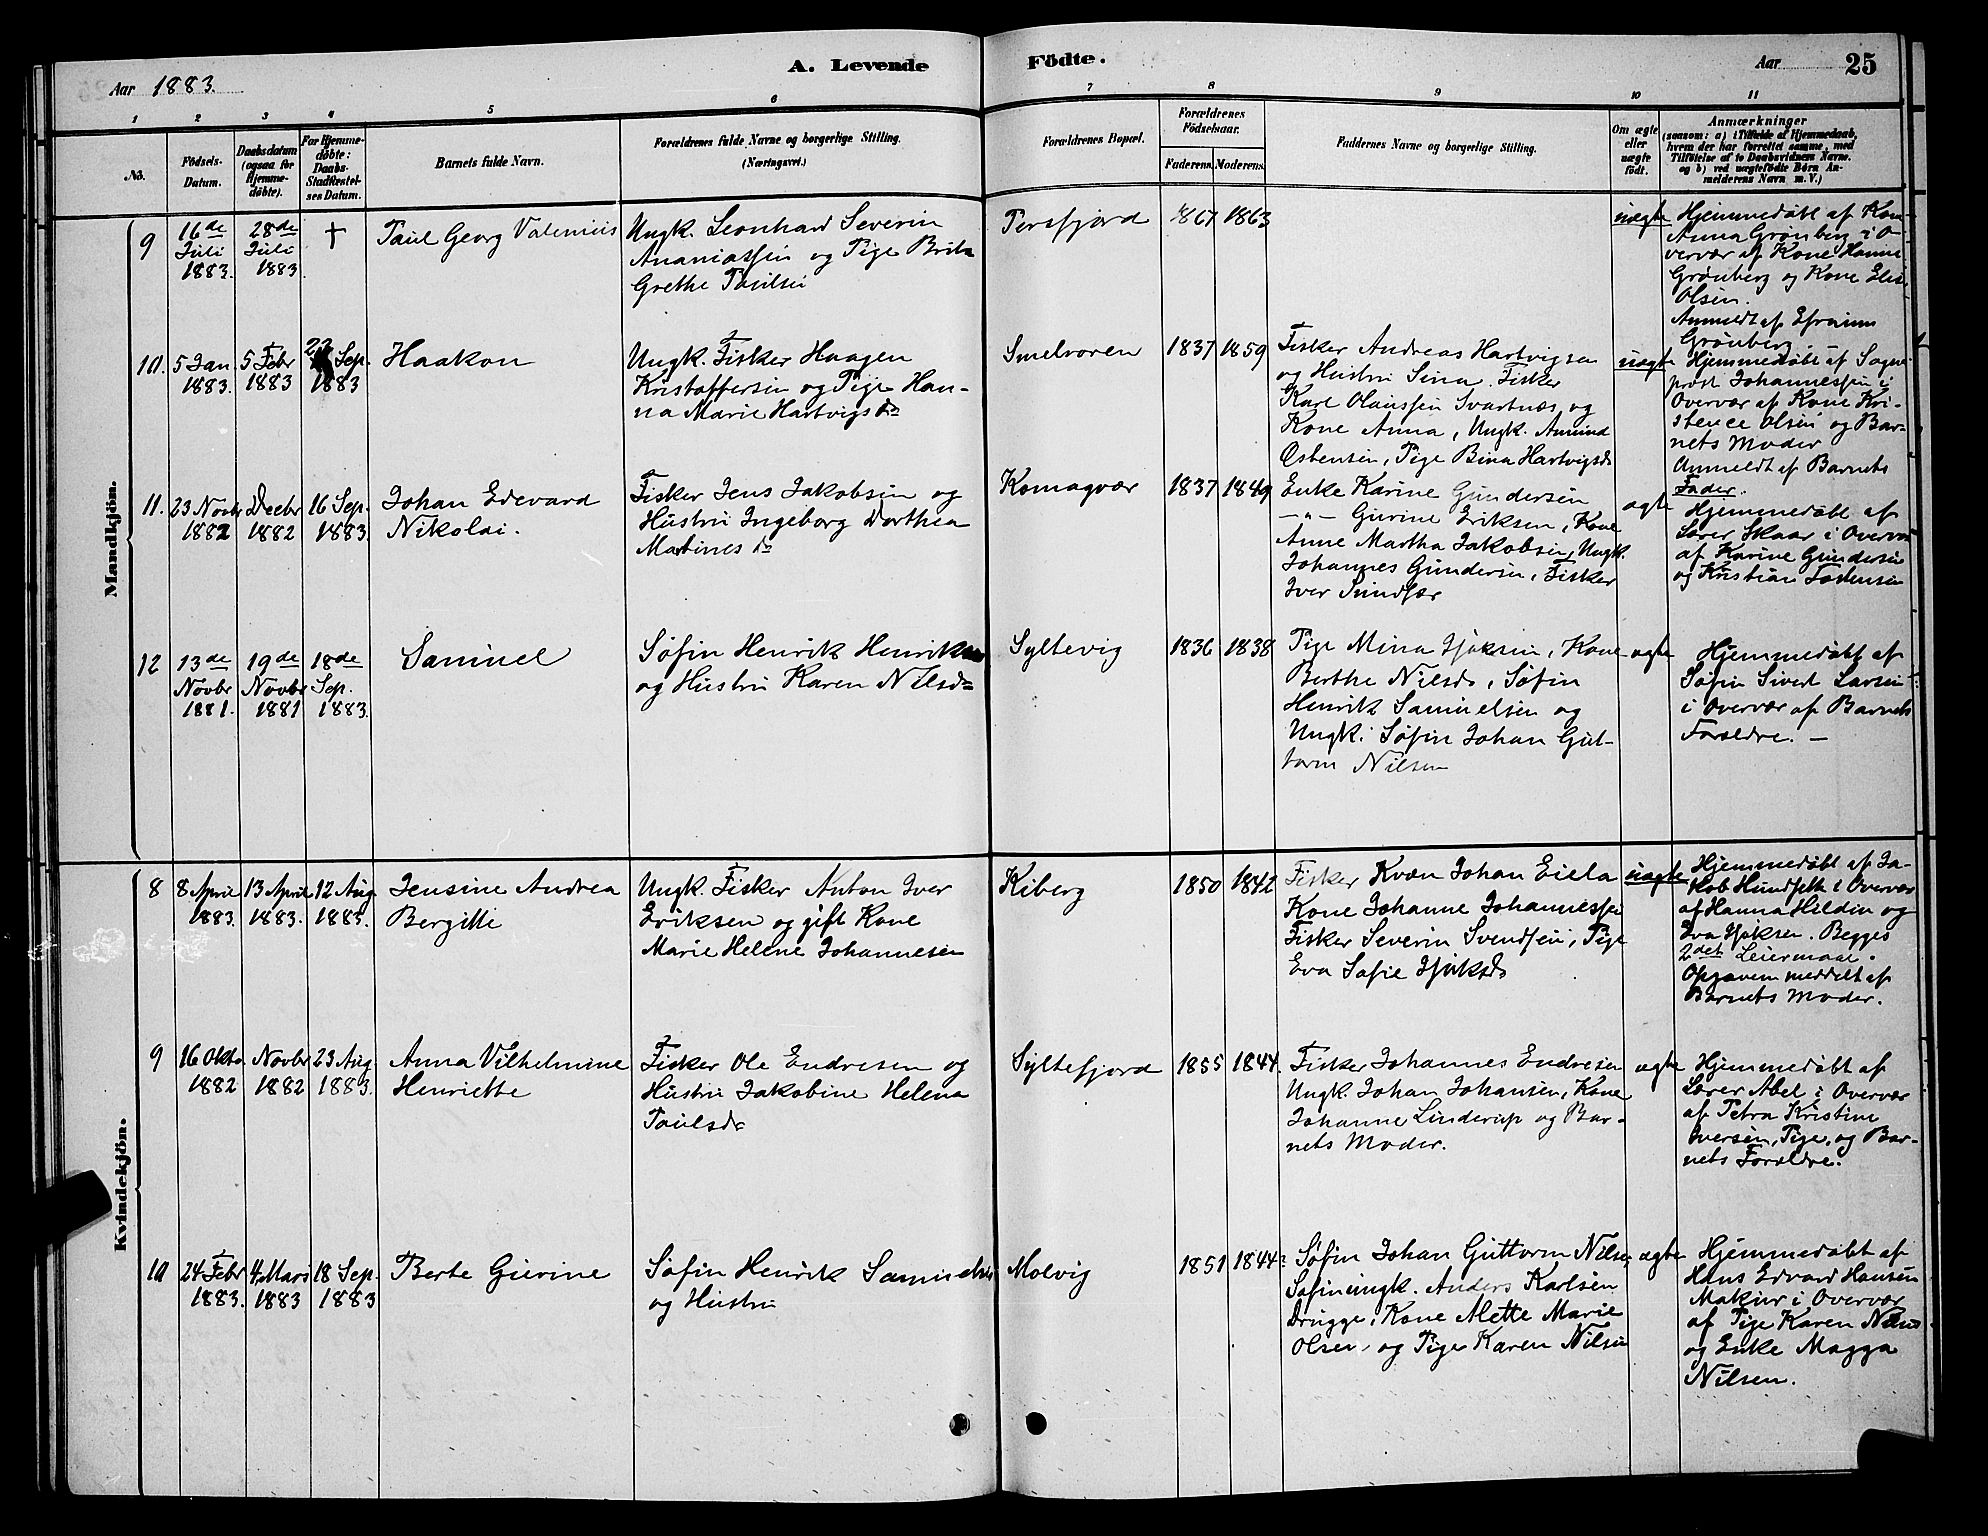 Aar 1883.
A. Levende
Födte.
Aar
25
1
2
3
4
5
6
7
8
9
10
11
No.
Födsels-
Datum.
Daabsdatum
(ogsaa for
Hjemme-
döbte).
For Hjemme-
döbte:
Daabs-
Stadfæstel-
ses Datum.
Barnets fulde Navn.
Forældrenes fulde Navne og borgerlige Stilling.
(Næringsvei.)
Forældrenes Bopæl.
Forældrenes
Födselsaar.
Faderens.
Moderens.
Faddernes Navne og borgerlige Stilling.
Om ægte
eller
uægte
födt.
Anmærkninger
(saasom: a) i Tilfælde af Hjemmedaab,
hvem der har forrettet samme, med
Tilföielse af to Daabsvidners Navne,
og b) ved uægtefödte Börn An-
melderens Navn m. V.)
Mandkjön.
9
16de
Juli
1883.
28de
Juli
1883.
†
Paul Georg Valenius
Ungk. Leonhard Severin
Ananiassen og Pige Brita
Grethe Paulsen
Persfjord
1867
1863
uægte
Hjemmedøbt af Kone
Anna Grønberg i O-
vervær af Kone Hanna
Grønberg og Kone Elen
Olsen.
Anmeldt af Efraim
Grønberg.
10.
5 Jan.
1883.
5 Febr
1883
23 Sep.
1883
Haakon
Ungk. Fisker Haagen
Kristoffersen og Pige Han-
na Marie Hartvigsdr
Smelroren
1837
1859
Fisker Andreas Hartvigsen
og Hustru Sina. Fisker
Karl Olaussen Svartnæs og
Kone Anna, Ungk. Amund
Østensen, Pige Bina Hartvigsdr
uægte
Hjemmedøbt af Sogne-
præst Johannessen i
Overvær af Kone Kri-
stence Olsen og Bar-
nets Moder
Anmeldt af Barnets
Fader.
11.
23 Novbr
1882
Decbr
1882
16 Sep.
1883.
Johan Edevard
Nikolai.
Fisker Jens Jakobsen og
Hustru Ingeborg Dorthea
Martines dr
Komagvær
1837
1849
Enke Karine Gundersen
—"— Gurine Eriksen, Kone
Anne Martha Jakobsen, Ungk.
Johannes Gundersen, Fisker
Iver Sundfær
ægte
Hjemmedøbt af
Lærer Skaar i Overvær
af Karine Gundersen
og Kristian Tostensen
12
13de
Novbr
1881.
19de
Novbr
1881
18de
Sep.
1883.
Samuel
Søfin Henrik Henriksen
og Hustru Karen Nilsdr
Syltevig
1836
1838
Pige Mina Isaksen, Kone
Berthe Nilsdr, Søfin
Henrik Samuelsen og
Ungk. Søfin Johan Gut-
torm Nilsen
ægte
Hjemmedøbt af
Søfin Sivert Larsen
i Overvær af Barnets
Forældre. —
Kvindekjön.
8
8 April
1883.
13 April
1883.
12 Aug
1883.
Jensine Andrea
Bergitte
Ungk. Fisker Anton Iver
Eriksen og gift Kone
Marie Helene Johannesen
Kiberg
1850
1842
Fisker Kvæn Johan Eiela
Kone Johanne Johannessen
Fisker Severin Svendsen, Pige
Eva Sofie Isaksdr
uægte
Hjemmedøbt af Ja-
kob Hundseth i Overvær
af Hanna Hildin og
Eva Isaksen. Begges
2det Leiermaal.
Opgaven meddelt af
Barnets Moder.
9
16 Oktb.
1882
Novbr
1882
23 Aug
1883.
Anna Vilhelmine
Henriette
Fisker Ole Endresen og
Hustru Jakobine Helena
Paulsdr
Syltefjord
1855
1844.
Fisker Johannes Endresen
Ungk. Johan Johansen, Kone
Johanne Linderup og Bar-
nets Moder.
ægte
Hjemmedøbt af
Lærer Abel i Overvær
af Petra Kristine
Iversen, Pige, og Bar-
nets Forældre.
10
24 Febr
1883.
4 Mars
1883
18 Sep.
1883
Berte Gurine
Søfin Henrik Samuelsen
og Hustru
Molvig
1851
1844?
Søfin Johan Guttorm Nilsen
Søfinungk. Anders Karlsen
Drugge, Kone Mette Marie
Olsen, og Pige Karen Nilsen
ægte
Hjemmedøbt af
Hans Edvard Hansen
Makur i Overvær
af Pige Karen Nilsen
og Enke Magga
Nilsen.